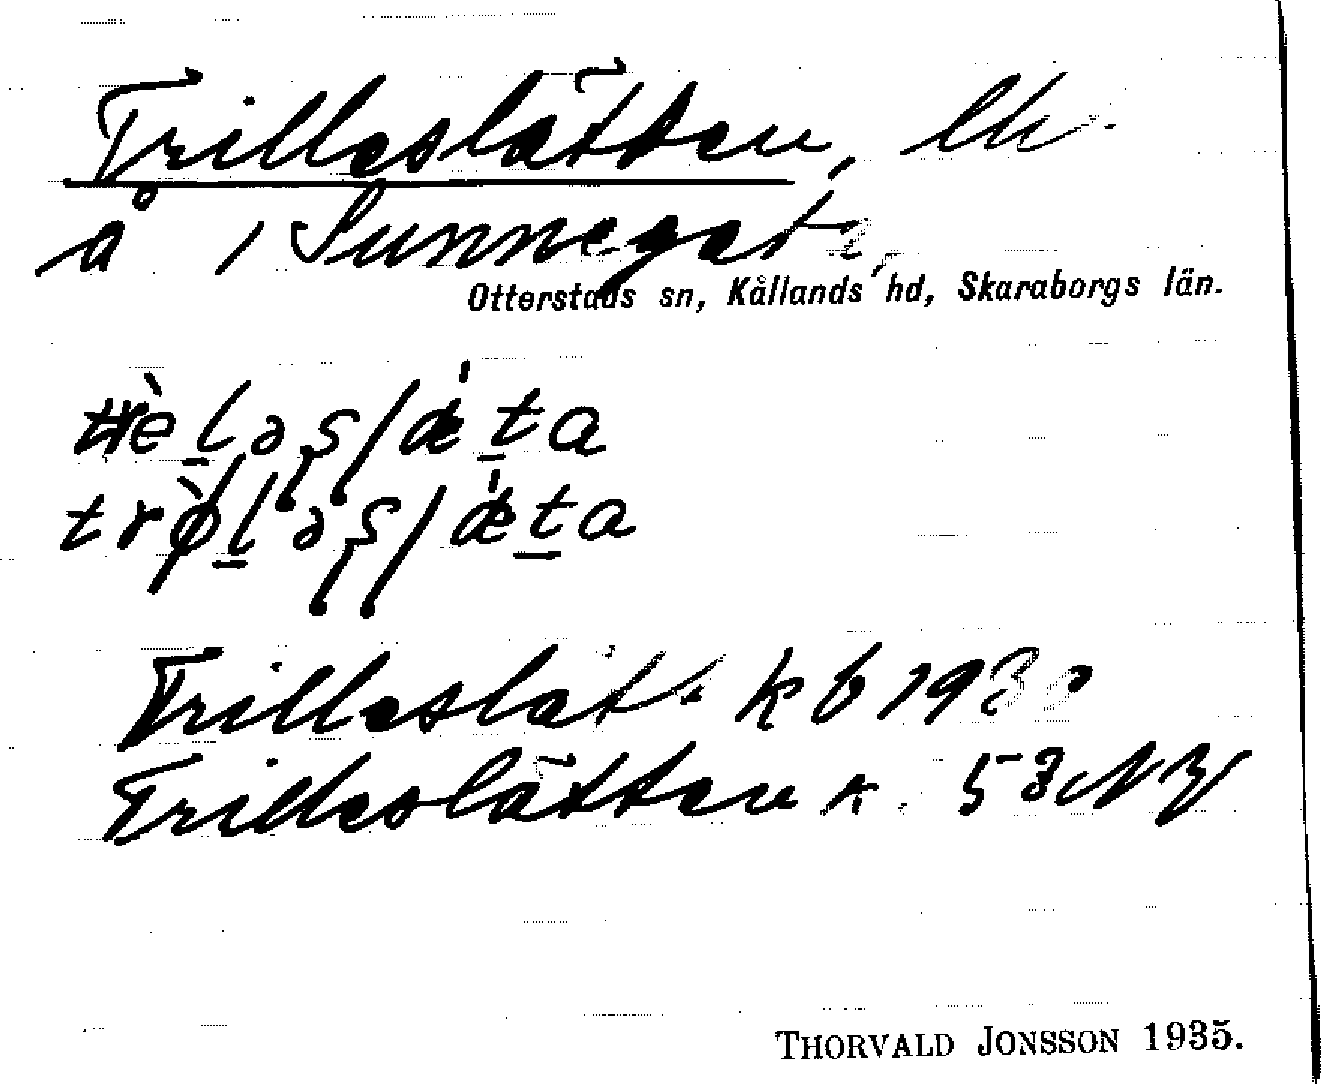 Trilleslätten, lh
å 1 Sunnegat
Otterstads sn, Kållands hd, Skaraborgs län.
trèləslǽta
trø̀ləslǽta
Trilleslät. kb 1930
Trilleslätten k. 53 NV
THORVALD JONSSON 1935.